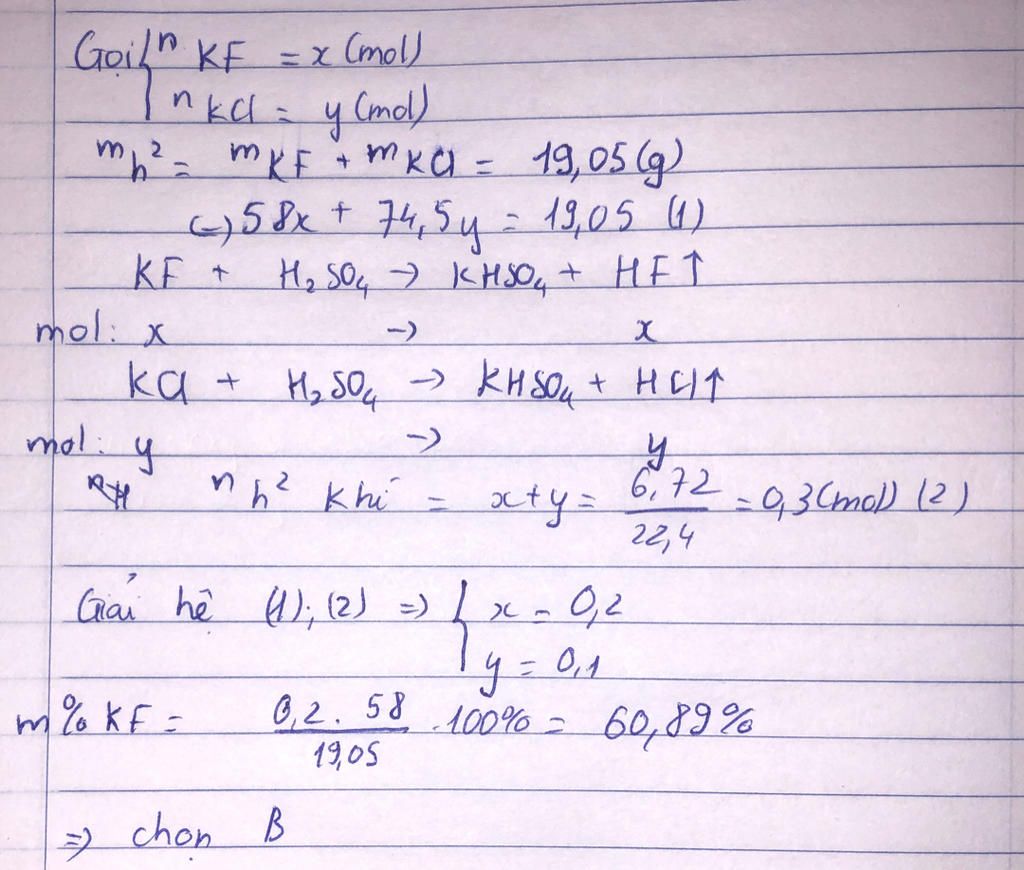 Gọi { n KF = x (mol)
n KCl = y (mol)
m h² = m KF + m KCl = 19,05 (g)
(-) 58x + 74,5y = 19,05 (1)
KF + H₂SO₄ → KHSO₄ + HF↑
mol: x → x
KCl + H₂SO₄ → KHSO₄ + HCl↑
mol: y → y
n h² khí = x+y = 6,72 / 22,4 = 0,3 (mol) (2)
Giải hệ (1); (2) => { x = 0,2
y = 0,1
m% KF = 0,2 . 58 / 19,05 . 100% = 60,89%
=> chọn B